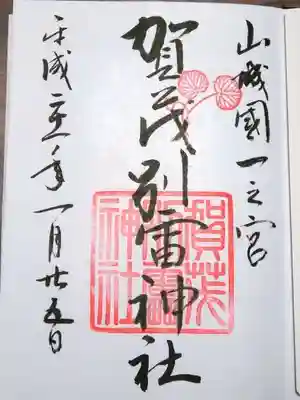 山城國一之宮
賀茂別雷神社
賀茂
別雷
神社
平成二五年一月廿五日